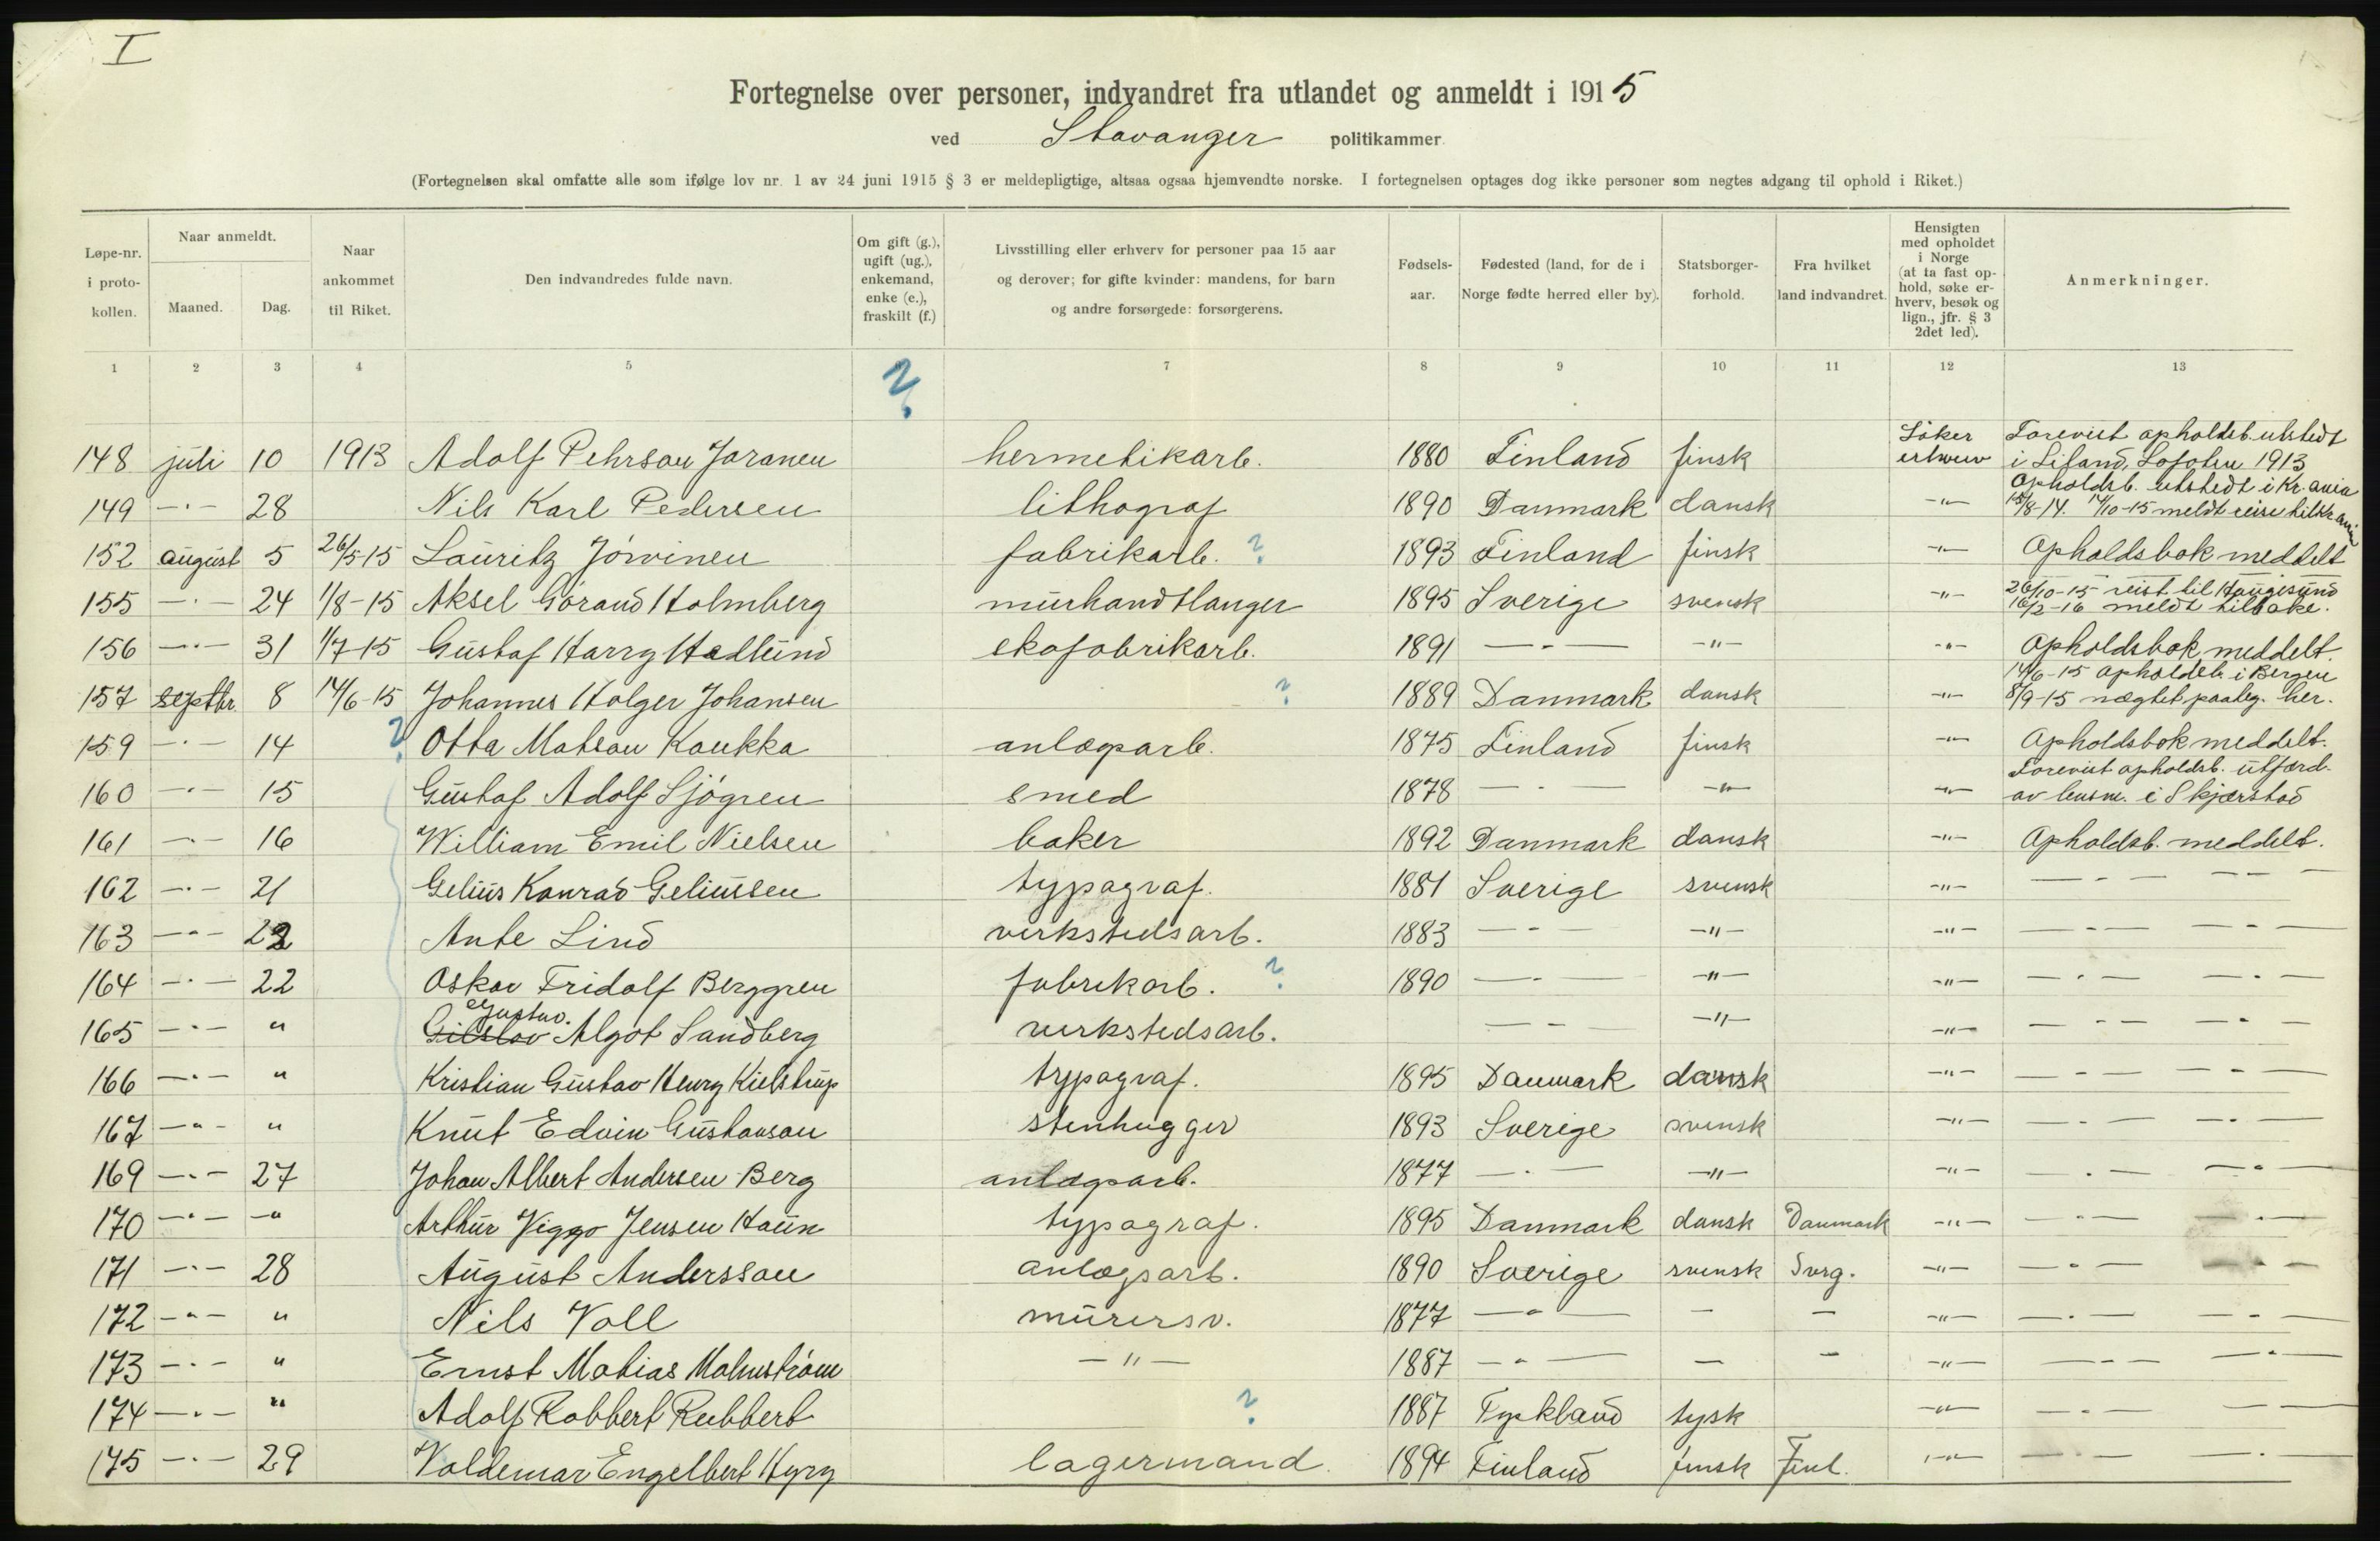 I
Fortegnelse over personer, indvandret fra utlandet og anmeldt i 1915
ved Stavanger politikammer
(Fortegnelsen skal omfatte alle som ifølge lov nr. 1 av 24 juni 1915 § 3 er meldepligtige, altsaa ogsaa hjemvendte norske. I fortegnelsen optages dog ikke personer som negtes adgang til ophold i Riket.)
Løpe-nr. i proto-kollen. Naar anmeldt. Maaned. Dag. Naar ankommet til Riket. Den indvandredes fulde navn. Om gift (g.), ugift (ug.), enkemand, enke (e.), fraskilt (f.) Livsstilling eller erhverv for personer paa 15 aar og derover; for gifte kvinder: mandens, for barn og andre forsørgede: forsørgerens. Fødsels-aar. Fødested (land, for de i Norge fødte herred eller by). Statsborger-forhold. Fra hvilket land indvandret. Hensigten med opholdet i Norge (at ta fast op-hold, søke er-hverv, besøk og lign., jfr. § 3 2det led). Anmerkninger.
1 2 3 4 5 ? 7 8 9 10 11 12 13
148 juli 10 1913 Adolf Pehrson Joranen hermetikarb. 1880 Finland finsk Söker erhverv Forevist opholdsb. utstedt i Lofoten 1913
149 —·— 28 Nils Karl Pedersen lithograf 1890 Danmark dansk —"— Opholdsb. utstedt i Kr.ania 15/8-14. 14/10-15 meldt reise til Kr.ania
152 august 5 26/5-15 Lauritz Jörvinen fabrikarb. ? 1893 Finland finsk —"— Opholdsbok meddelt
155 —·— 24 1/8-15 Aksel Görand Holmberg murhandtlanger 1895 Sverige svensk —"— 26/10-15 reist til Haugesund 16/2-16 meldt tilbake.
156 —·— 31 1/7-15 Gustaf Harry Hedlund skofabrikarb. 1891 —·— —"— —"— Opholdsbok meddelt.
157 septbr. 8 14/6-15 Johannes Holger Johansen ? 1889 Danmark dansk —"— 14/6-15 opholdsb. i Bergen 8/9-15 nægtet paateg. her.
159 —·— 14 ? Otta Matson Kaukka anlægsarb. 1875 Finland finsk —"— Opholdsbok meddelt.
160 —·— 15 Gustaf Adolf Sjögren smed 1878 —·— —"— —"— Forevist opholdsb. utfærd. av lensm. i Skjærstad
161 —·— 16 William Emil Nielsen baker 1892 Danmark dansk —"— Opholdsb. meddelt.
162 —·— 21 Gelius Konrad Geliussen typograf. 1881 Sverige svensk —"— —·— —·—
163 —·— 22 Ante Lind verkstedsarb. 1883 —·— —"— —"— —·— —·—
164 —·— 22 Oskar Fridolf Berggren fabrikarb. ? 1890 —·— —"— —"— —·— —·—
165 —·— " Gustav. Algot Sandberg verkstedsarb. —·— —"— —"— —·— —·—
166 —·— " Kristian Gustav Henry Kielstrup typograf. 1895 Danmark dansk —"— —·— —·—
167 —"— " Knut Edvin Gustavson stenhugger 1893 Sverige svensk —"— —·— —·—
169 —·— 27 Johan Albert Andersen Berg anlægsarb. 1877 —·— —"— —"— —·— —·—
170 —·— —" Arthur Viggo Jensen Haun typograf. 1895 Danmark dansk Danmark —"— —·— —·—
171 —·— 28 August Andersson anlægsarb. 1890 Sverige svensk Svrg. —"— —·— —·—
172 —"— " Nils Voll murersv. 1877 —"— — — —"— —·— —·—
173 —·— " Ernst Matias Malmström —"— 1887 —"— — — —"— —·— —·—
174 —·— " Adolf Robbert Rubbert ? 1887 Tyskland tysk —"— —·— —·—
175 —·— 29 Valdemar Engelbert Hyry lagermand. 1894 Finland finsk Finl. —"— —·— —·—